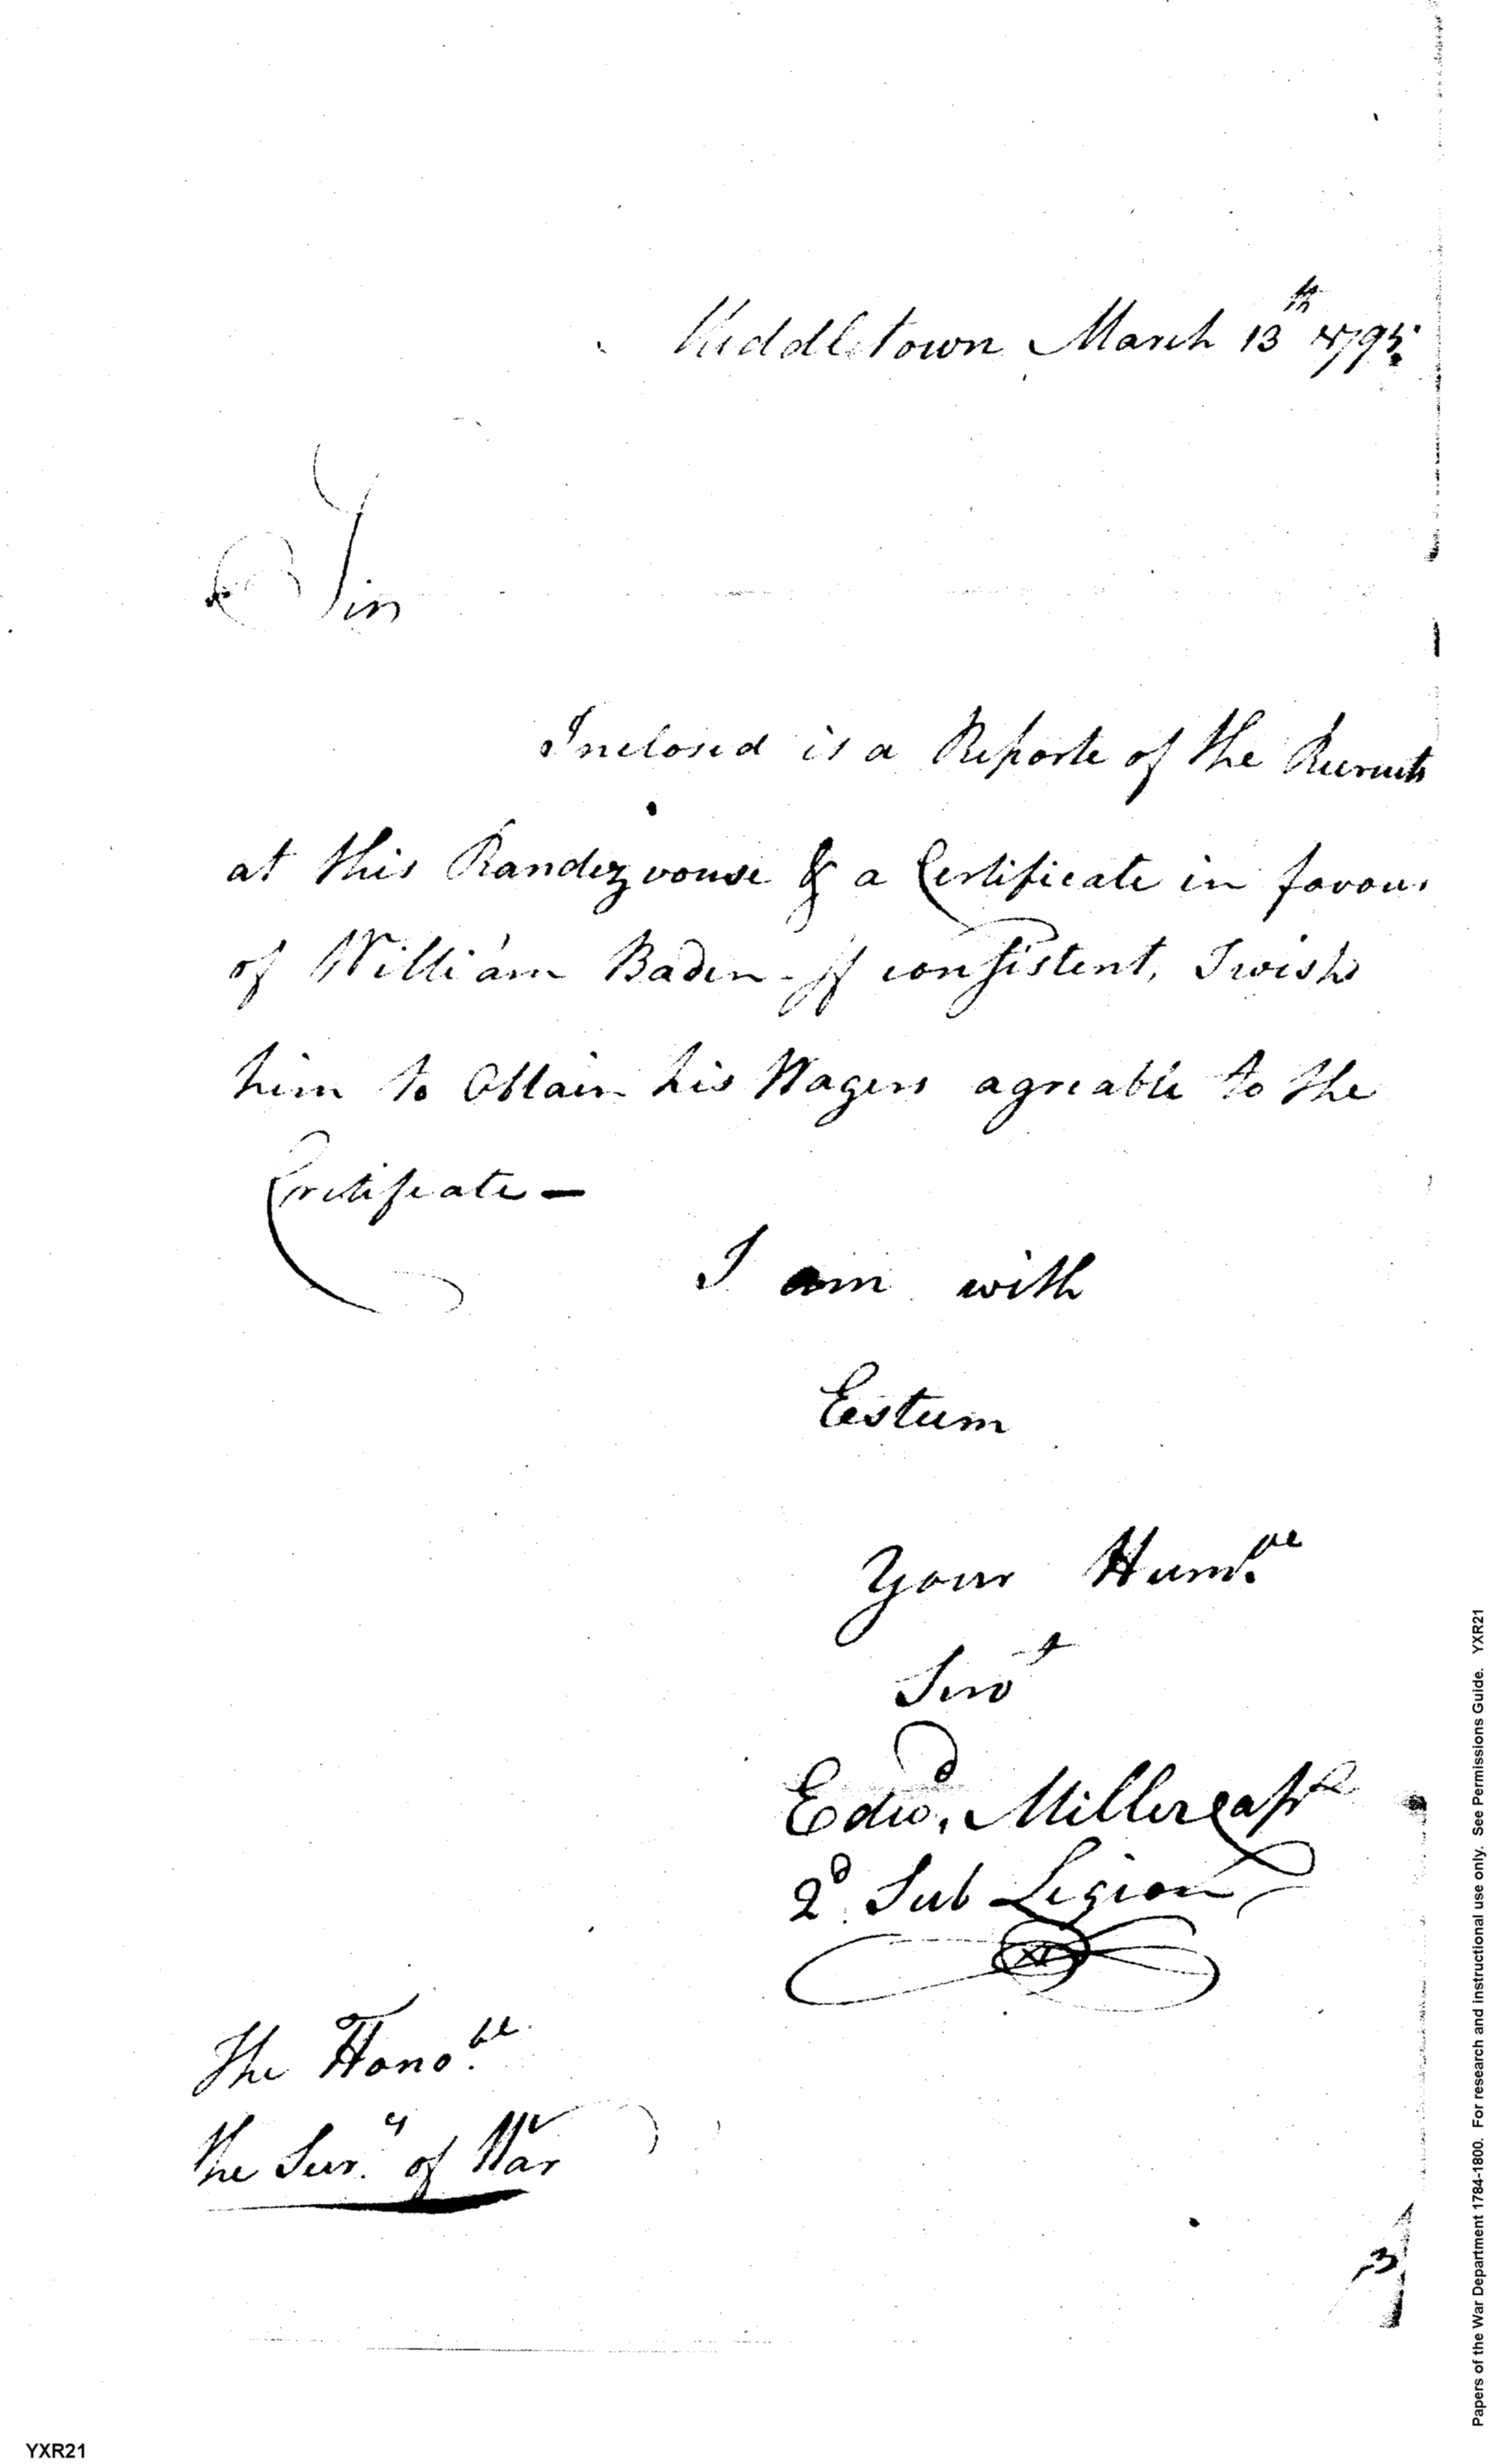 Middletown March 13th 1795.
Sir
Inclosed is a Reporte of the Recruits
at this Randezvouse & a Certificate in favour
of William Baden - If consistent, I wish
him to Obtain his Wagers agreable to the
Certificate —
I am with
Eesteem
Your Humble
Servt
Edwd. Miller Capt
2d. Sub Legion
The Honoble
the Secry of War
3
Papers of the War Department 1784-1800. For research and instructional use only. See Permissions Guide. YXR21
YXR21